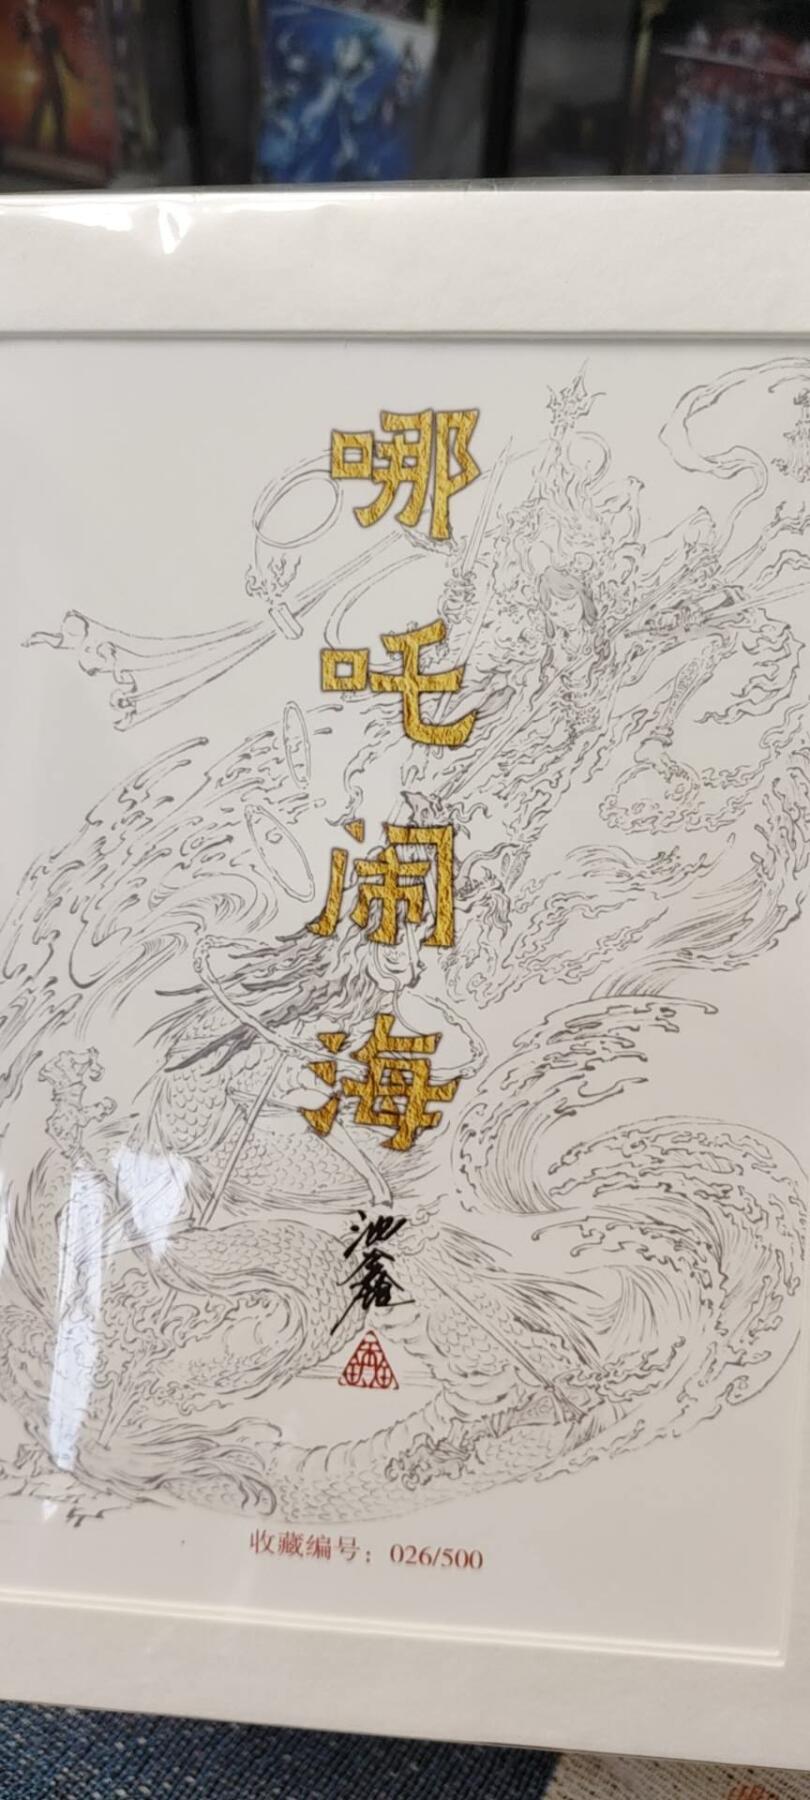 哪吒闹海
池鑫
收藏编号：026/500